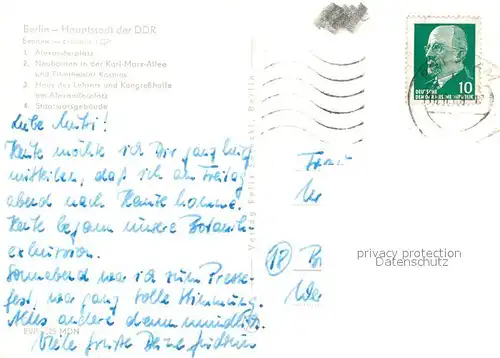 Berlin – Hauptstadt der DDR
1. Alexanderplatz
2. Neubauten in der Karl-Marx-Allee
und Filmtheater Kosmos
3. Haus des Lehrers und Kongreßhalle
am Alexanderplatz
4. Staatsratsgebäude
Liebe Mutti!
Heute möchte ich Dir ganz kurz
mitteilen, daß ich am Freitag
abend nach Hause komme.
Heute begann unsere Botanik
exkursion.
Sonnabend war ich zum Presse-
fest, war ganz tolle Stimmung.
Alles andere dann mündlich.
Viele Grüße Deine
MDN
Berlin
10
DEUTSCHE
DEMOKRATISCHE REPUBLIK
18
privacy protection
Datenschutz